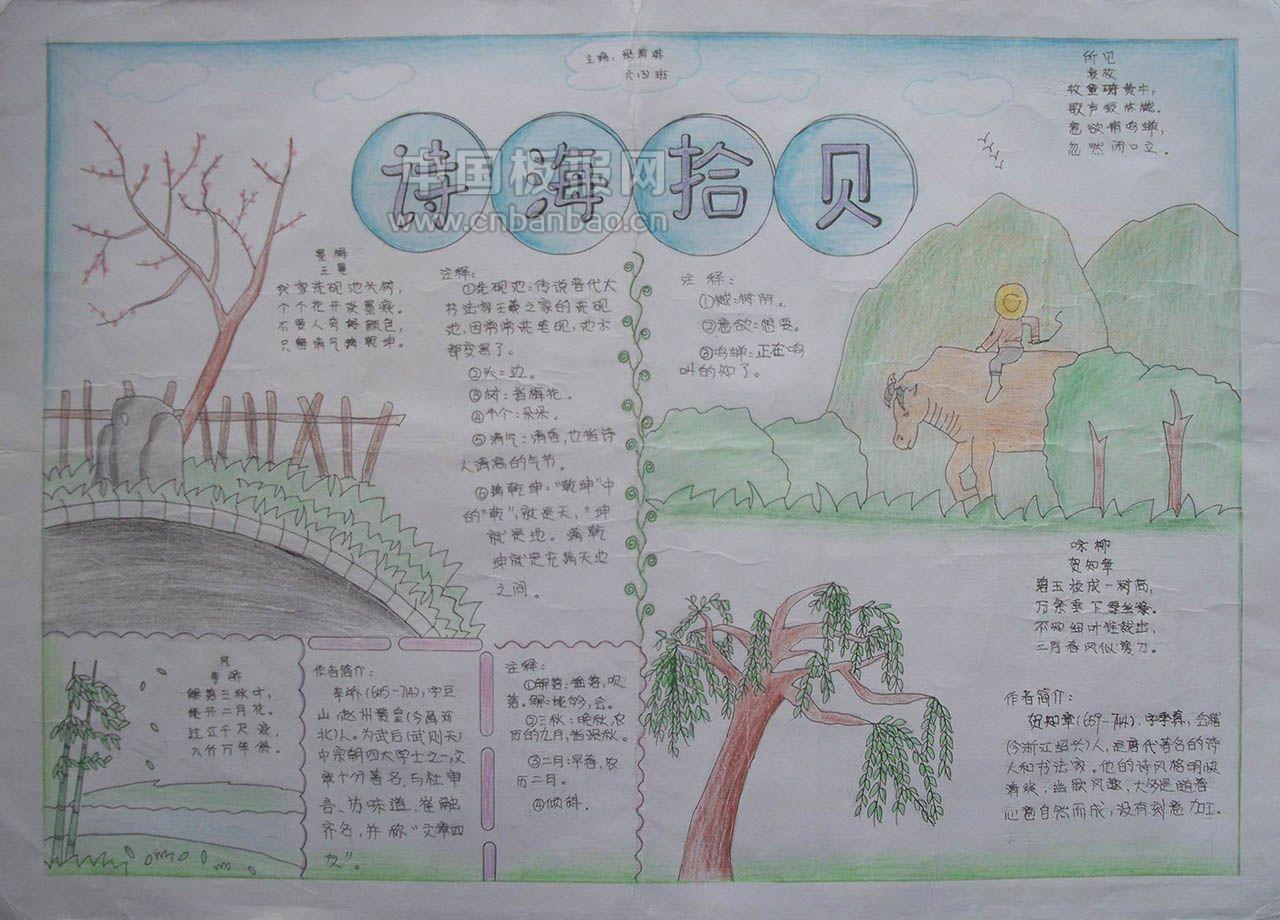 主编：
六(3)班
诗海拾贝
中国板报网
www.cnbanbao.cn
所见
袁枚
牧童骑黄牛，
歌声振林樾。
意欲捕鸣蝉，
忽然闭口立。
墨梅
王冕
我家洗砚池头树，
个个花开淡墨痕。
不要人夸好颜色，
只留清气满乾坤。
注释：
①洗砚池：传说晋代大
书法家王羲之家的洗砚
池，因常常洗笔砚，池水
都变黑了。
②头：边。
③树：指梅花。
④个个：朵朵。
⑤清气：清香，也指诗
人清高的气节。
⑥满乾坤：“乾坤”中
的“乾”，就是天，“坤
就是地。满乾
坤就是充满天地
之间。
注释：
①樾：树阴。
②意欲：想要。
③鸣蝉：正在鸣
叫的知了。
风
李峤
解落三秋叶，
能开二月花。
过江千尺浪，
入竹万竿斜。
作者简介：
李峤(645-714)，字巨
山，赵州赞皇(今属河
北)人。为武后(武则天)
中宗朝四大学士之一，文
章十分著名，与杜审
言、苏味道、崔融
齐名，并称“文章四
友”。
注释：
①解落：吹
落。解：能够，会。
②三秋：晚秋，农
历的九月，指深秋。
③二月：早春，农
历二月。
④倾斜．
咏柳
贺知章
碧玉妆成一树高，
万条垂下绿丝绦。
不知细叶谁裁出，
二月春风似剪刀。
作者简介：
贺知章(659-744)，字季真，会稽
(今浙江绍兴)人，是唐代著名的诗
人和书法家。他的诗风格明快
清淡，幽默风趣，大多是随着
心意自然而成，没有刻意加工．